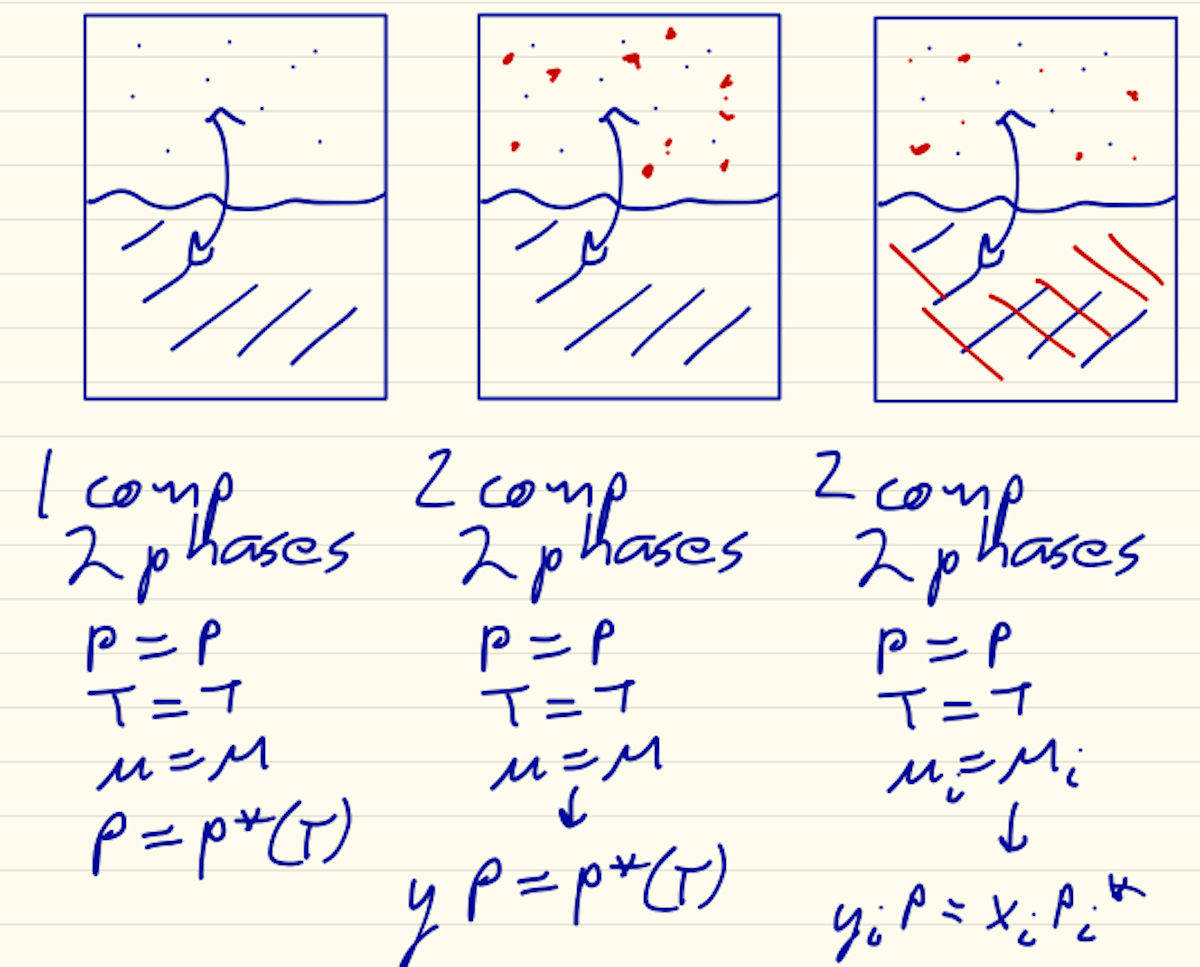 1 comp
2 phases
P = P
T = T
μ = μ
P = P*(T)
2 comp
2 phases
P = P
T = T
μ = μ
↓
y P = P*(T)
2 comp
2 phases
P = P
T = T
μi = μi
↓
yi P = xi Pi*